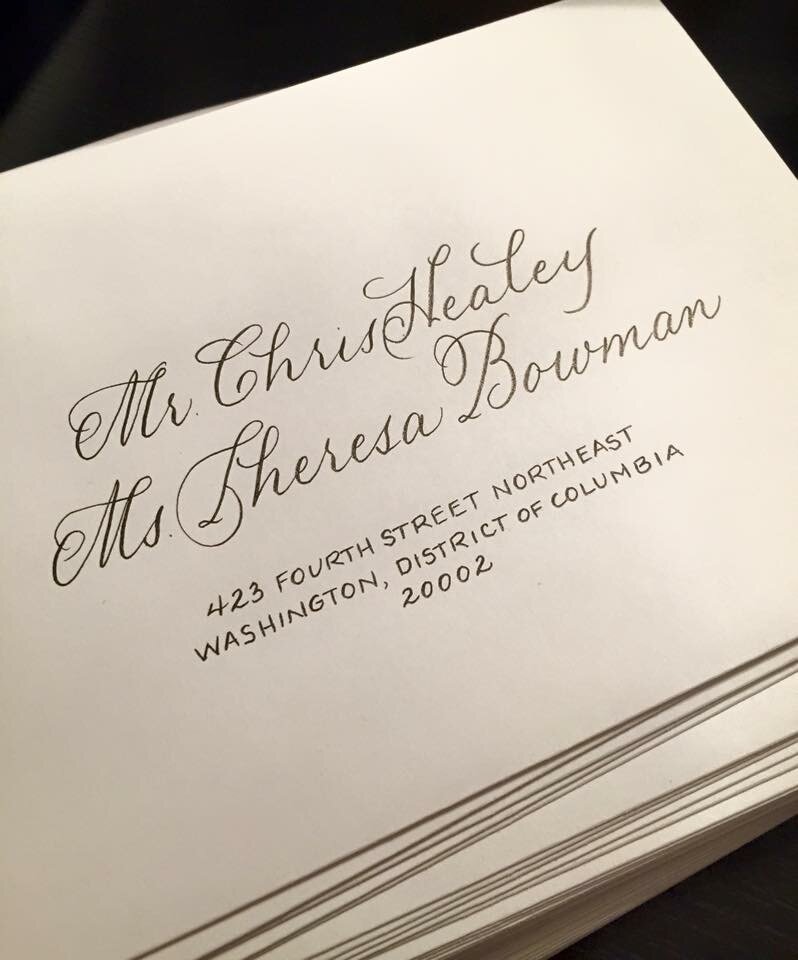 Mr. Chris Healey
Ms. Theresa Bowman
423 FOURTH STREET NORTHEAST
WASHINGTON, DISTRICT OF COLUMBIA
20002